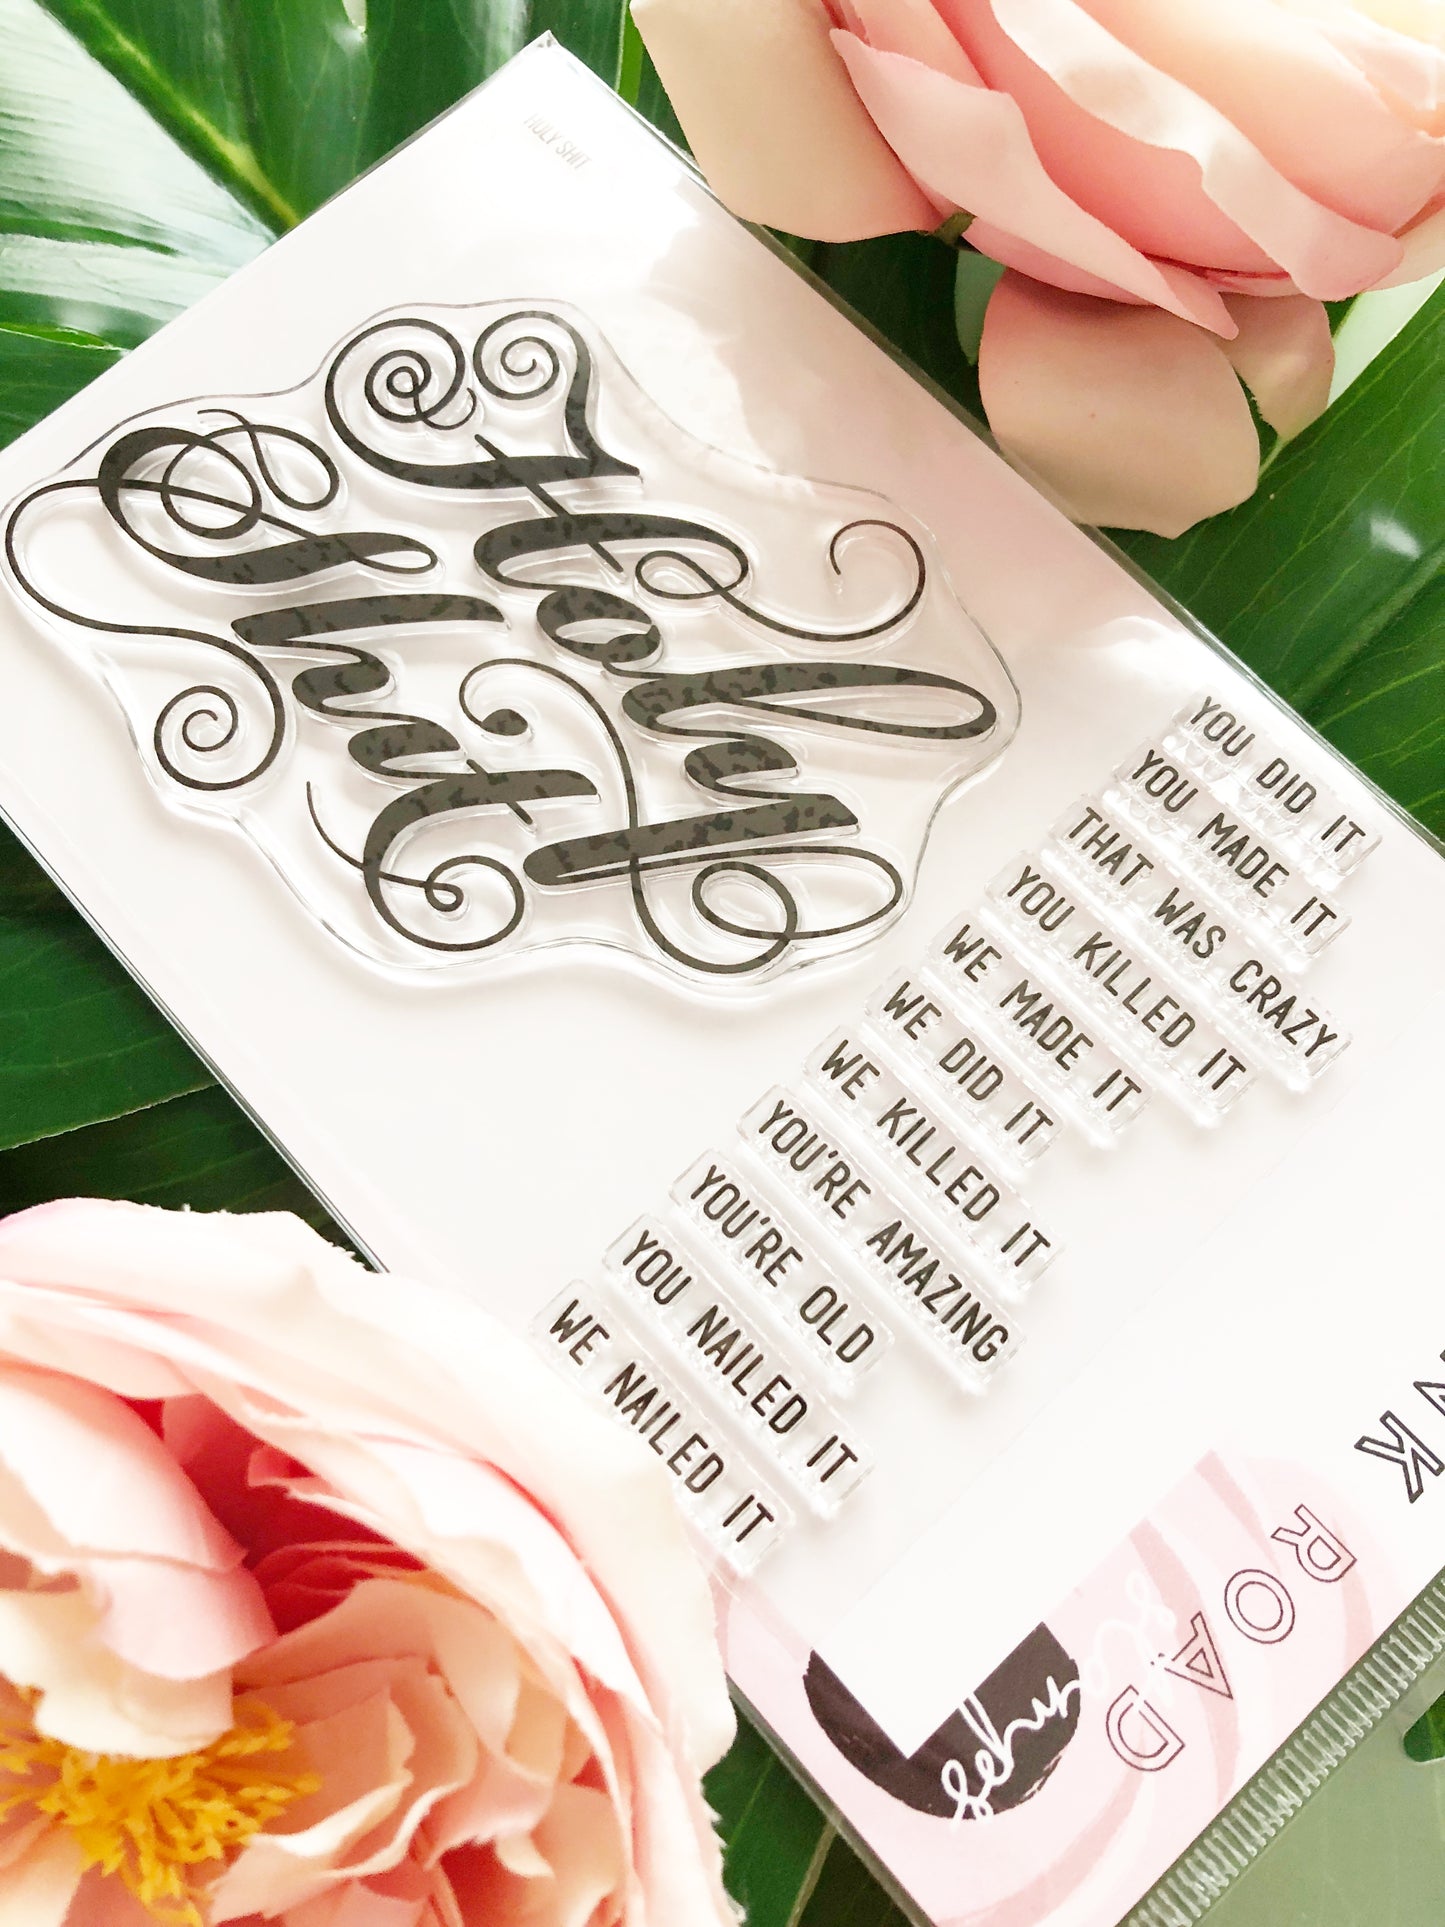 HOLY SHIT
Holy
Shit
YOU DID IT
YOU MADE IT
THAT WAS CRAZY
YOU KILLED IT
WE MADE IT
WE DID IT
WE KILLED IT
YOU'RE AMAZING
YOU'RE OLD
YOU NAILED IT
WE NAILED IT
ROAD